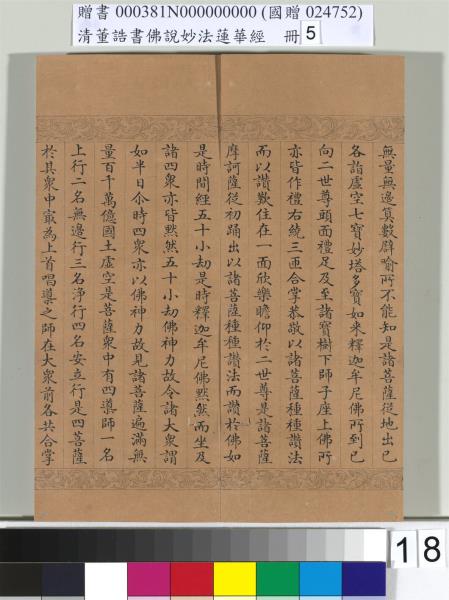 贈書 000381N000000000 (國贈 024752)
清董誥書佛說妙法蓮華經 冊 5
無量無邊筭數譬喻所不能知是諸菩薩從地出已
各詣虛空七寶妙塔多寶如來釋迦牟尼佛所到已
向二世尊頭面禮足及至諸寶樹下師子座上佛所
亦皆作禮右繞三匝合掌恭敬以諸菩薩種種讚法
而以讚歎住在一面欣樂瞻仰於二世尊是諸菩薩
摩訶薩從初踊出以諸菩薩種種讚法而讚於佛如
是時間經五十小劫是時釋迦牟尼佛默然而坐及
諸四眾亦皆默然五十小劫佛神力故令諸大眾謂
如半日尒時四眾亦以佛神力故見諸菩薩遍滿無
量百千萬億國土虛空是菩薩眾中有四導師一名
上行二名無邊行三名淨行四名安立行是四菩薩
於其眾中冣為上首唱導之師在大眾前各共合掌
18